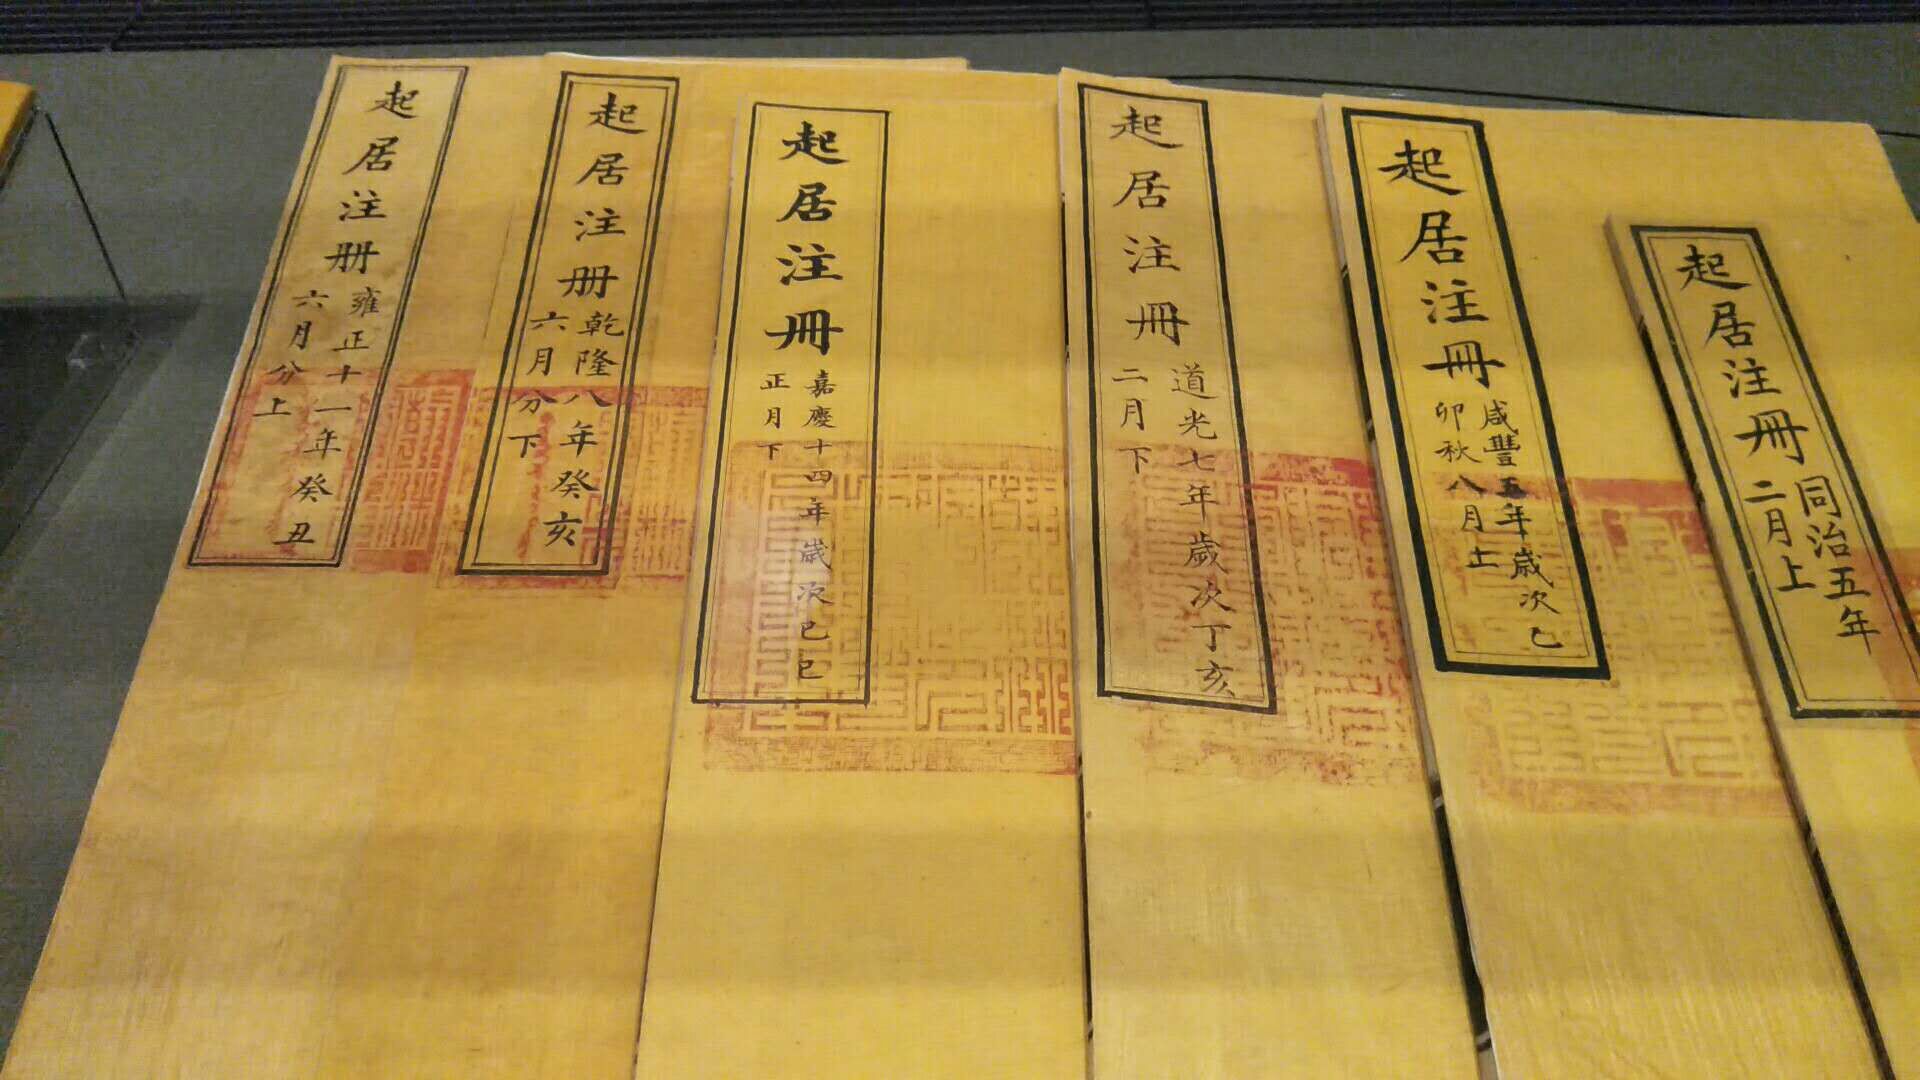 起居注册
雍正十一年癸丑
六月分上
起居注册
乾隆八年癸亥
六月分下
起居注冊
嘉慶十四年歲次己巳
正月下
起居注冊
道光七年歲次丁亥
二月下
起居注冊
咸豐五年歲次乙
卯秋八月上
起居注冊
同治五年
二月上